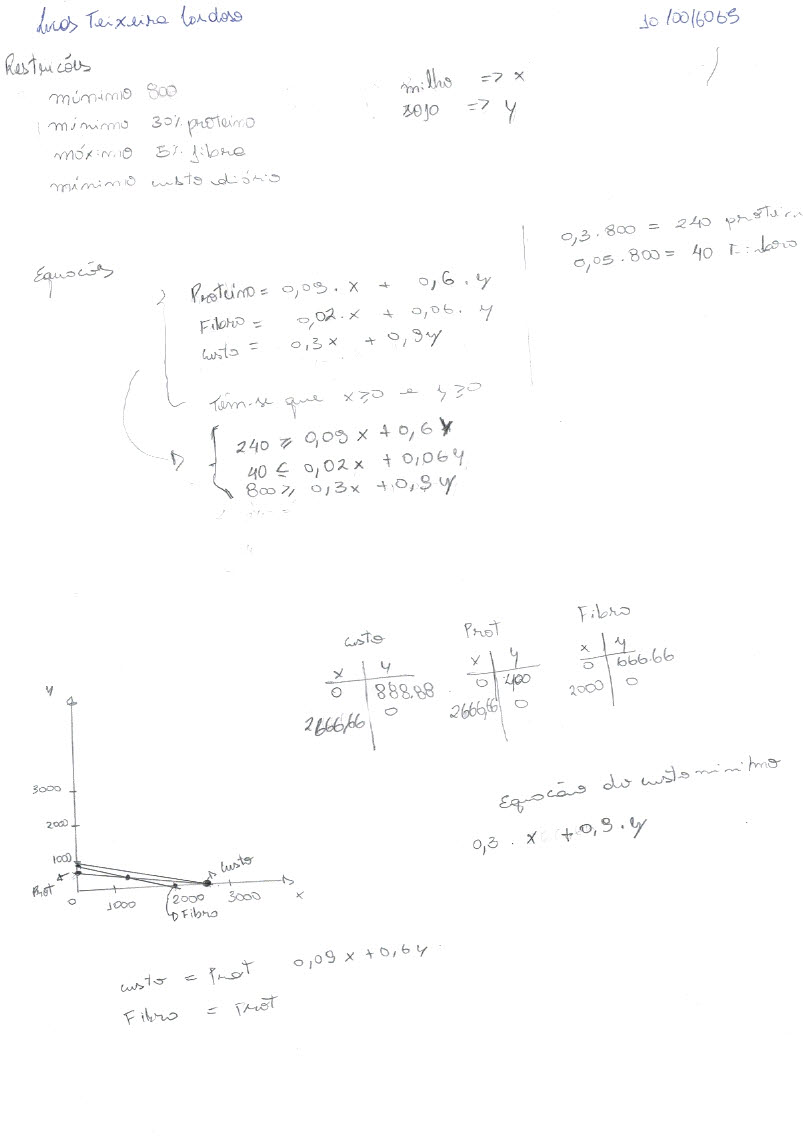 Lucas Teixeira Cardoso 10/0016069
Restrições
mínimo 800
mínimo 30% proteina
máximo 5% fibra
mínimo custo diário
milho => x
soja => y
0,3 . 800 = 240 protein
0,05 . 800 = 40
Equações
Proteina = 0,09 . x + 0,6 . y
Fibra = 0,02 . x + 0,06 . y
Custo = 0,3x + 0,9y
Têm-se que x≥0 e y≥0
240 ≥ 0,09x + 0,6y
40 ≤ 0,02x + 0,06y
800 ≥ 0,3x + 0,9y
Custo Prot Fibra
x y x y x y
0 888,88 0 400 0 666,66
2666,66 0 2666,66 0 2000 0
y
3000
2000
1000
Prot
Custo
0 1000 2000 3000 x
Fibra
Equação do custo minimo
0,3 . x + 0,9 . y
custo = Prot 0,09x + 0,6y
Fibra = Prot